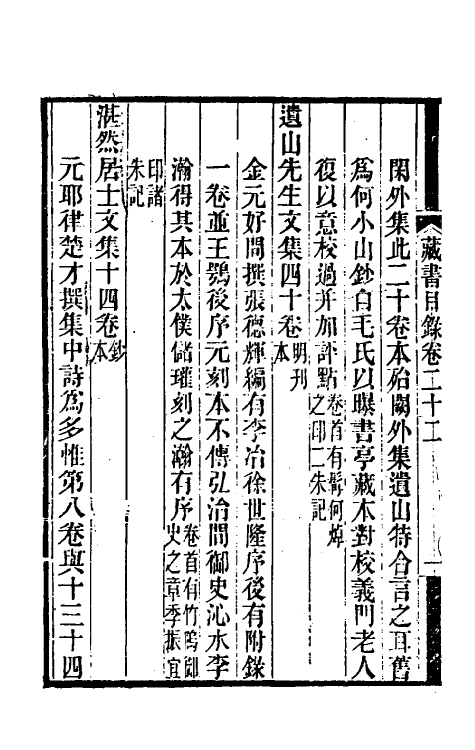 藏書目錄卷二十二
閑外集此二十卷本殆闕外集遺山特合言之耳舊
爲何小山鈔自毛氏以曝書亭藏本對校義門老人
復以意校過并加評點卷首有髯何焯之印二朱記
遺山先生文集四十卷明刊本
金元好問撰張德輝編有李冶徐世隆序後有附錄
一卷並王鶚後序元刻本不傳弘治間御史沁水李
瀚得其本於太僕儲瓘刻之瀚有序卷首有竹塢御史之章季振宜
印諸朱記
湛然居士文集十四卷鈔本
元耶律楚才撰集中詩爲多惟第八卷與十三十四